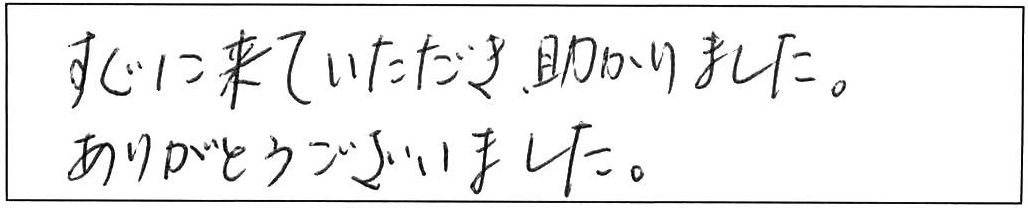 すぐに来ていただき、助かりました。
ありがとうございました。